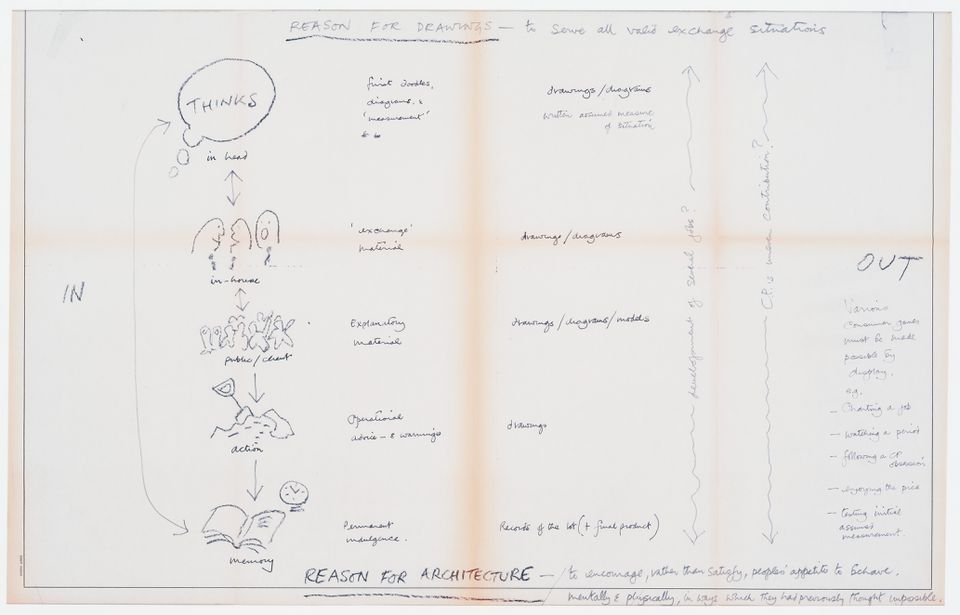 REASON FOR DRAWINGS — to serve all valid exchange situations
THINKS
in head
first doodles,
diagrams, &
'measurement'
drawings / diagrams
written assumed measure
of situation
in-house
'exchange'
material
drawings / diagrams
IN
OUT
public / client
Explanatory
material
drawings / diagrams / models
action
Operational
advice - & warnings
drawings
memory
Permanent
indulgence.
Records of the lot (+ final product)
development of social jobs?
C.P.'s main contribution?
Various
Consumer games
must be made
possible by
display.
e.g.
— Charting a job
— watching a period
— following a CP
obsession
— enjoying the pics
— testing initial
assumed
measurement.
REASON FOR ARCHITECTURE — to encourage, rather than satisfy, people's appetite to behave,
mentally & physically, in ways which they had previously thought impossible.